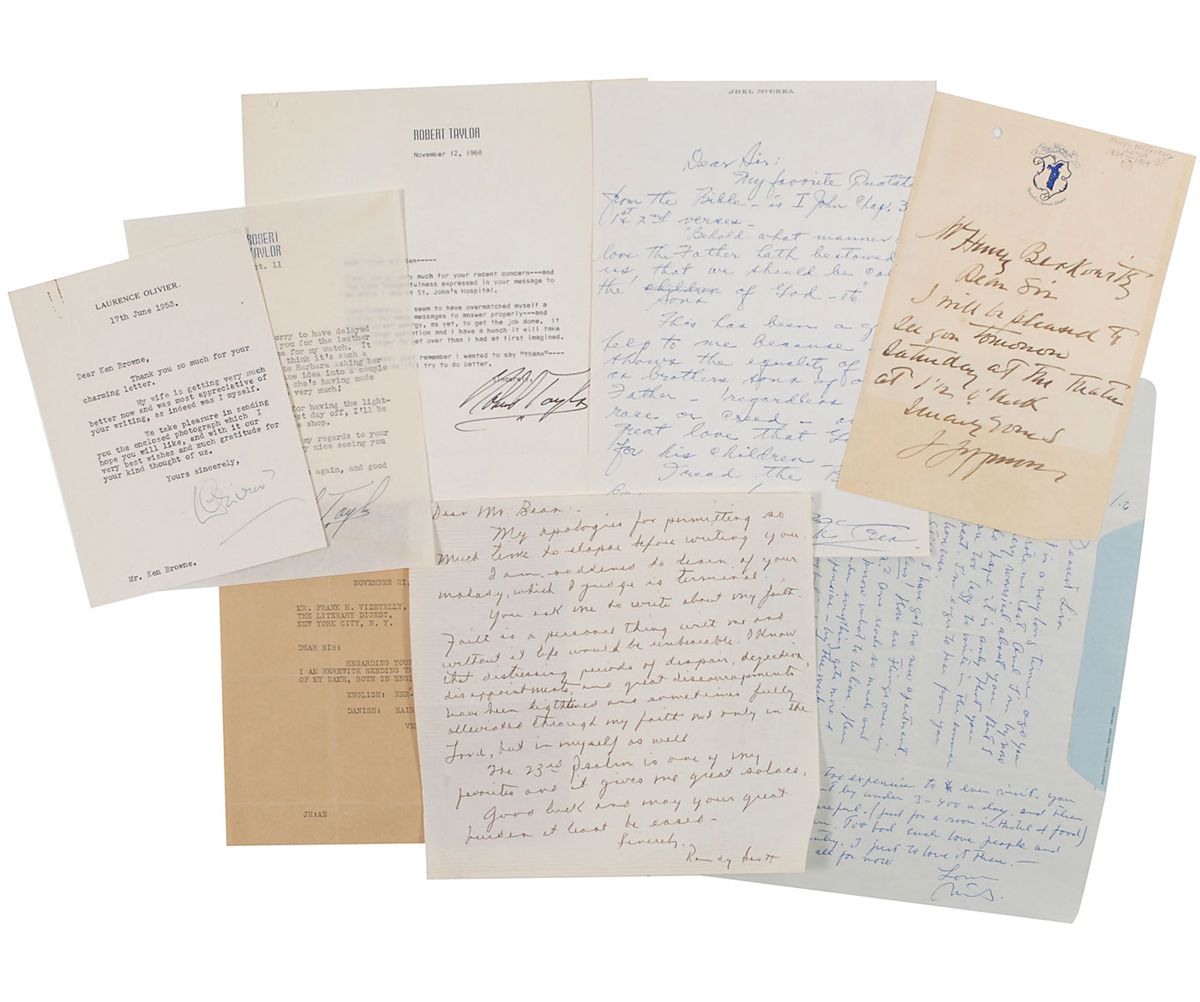 LAURENCE OLIVIER.
17th June 1953.
Dear Ken Browne,
Thank you so much for your
charming letter.
My wife is getting very much
better now and was most appreciative of
your writing, as indeed was I myself.
We take pleasure in sending
you the enclosed photograph which I
hope you will like, and with it our
very best wishes and much gratitude for
your kind thought of us.
Yours sincerely,
LOlivier
Mr. Ken Browne.
ROBERT
TAYLOR
11
orry to have delayed
you for the leather
se for my watch. It
think it's such a
Barbara asking her
me idea into a couple
she's having made
very much!
for having the light-
day off, I'll be
shop.
my regards to your
very nice seeing you
again, and good
Tayl
ROBERT TAYLOR
November 12, 1968
Ken-----
much for your recent concern---and
fulness expressed in your message to
St. John's Hospital.
seem to have overmatched myself a
messages to answer properly---and
gy, as yet, to get the job done. It
tion and I have a hunch it will take
get over than I had at first imagined.
remember I wanted to say "thanx"----
try to do better.
Sincerely,
Robert Taylor
JOEL McCREA
Dear Sir:
My favorite Quotat
from the Bible - is I John Chap. 3
1st 2nd verses -
"Behold what manner
love the Father hath bestowed
us, that we should be ca
the children of God - its
Sons
This has been a g
help to me because
shows the equality of
as brothers sons of o
Father - regardless
race or creed - a
great love that
for his children -
I read the B
Mc Crea
Mr Henry Berkowitz
Dear Sir
I will be pleased to
see you tomorrow
Saturday at the Theatre
at
yours
NOVEMBER 21,
MR. FRANK H. VIZETELLY,
THE LITERARY DIGEST,
NEW YORK CITY, N. Y.
DEAR SIR:
REGARDING YOUR
I AM HEREWITH SENDING TH
OF MY NAME, BOTH IN ENGL
ENGLISH: HER-
DANISH: HAIR
VE
JH:AE
Dear Mr. Bean:-
My apologies for permitting so
much time to elapse before writing you.
I am saddened to learn of your
malady, which I judge is terminal.
You ask me to write about my faith.
Faith is a personal thing with me and
without it life would be unbearable. I know
that distressing periods of despair, dejection,
disappointments, and great discouragements
have been lightened and sometimes fully
alleviated through my faith not only in the
Lord, but in myself as well.
The 23rd Psalm is one of my
favorites and it gives me great solace.
Good luck and may your great
burden at least be eased -
Sincerely,
Randy Scott
in a very long time ago you
And I'm by now
very worried about you. But I
hope it is only that you
are too lazy to write
eager to hear from you
I have got no new apartment
How are things over in
One reads so much and
know what to believe
everything gets more &
expensive - by the week
too expensive to even visit, you
by under 3-400 a day, and then
careful. (just for a room in Hotel & food)
Too bad
I just to love it there. -
all for now
Love